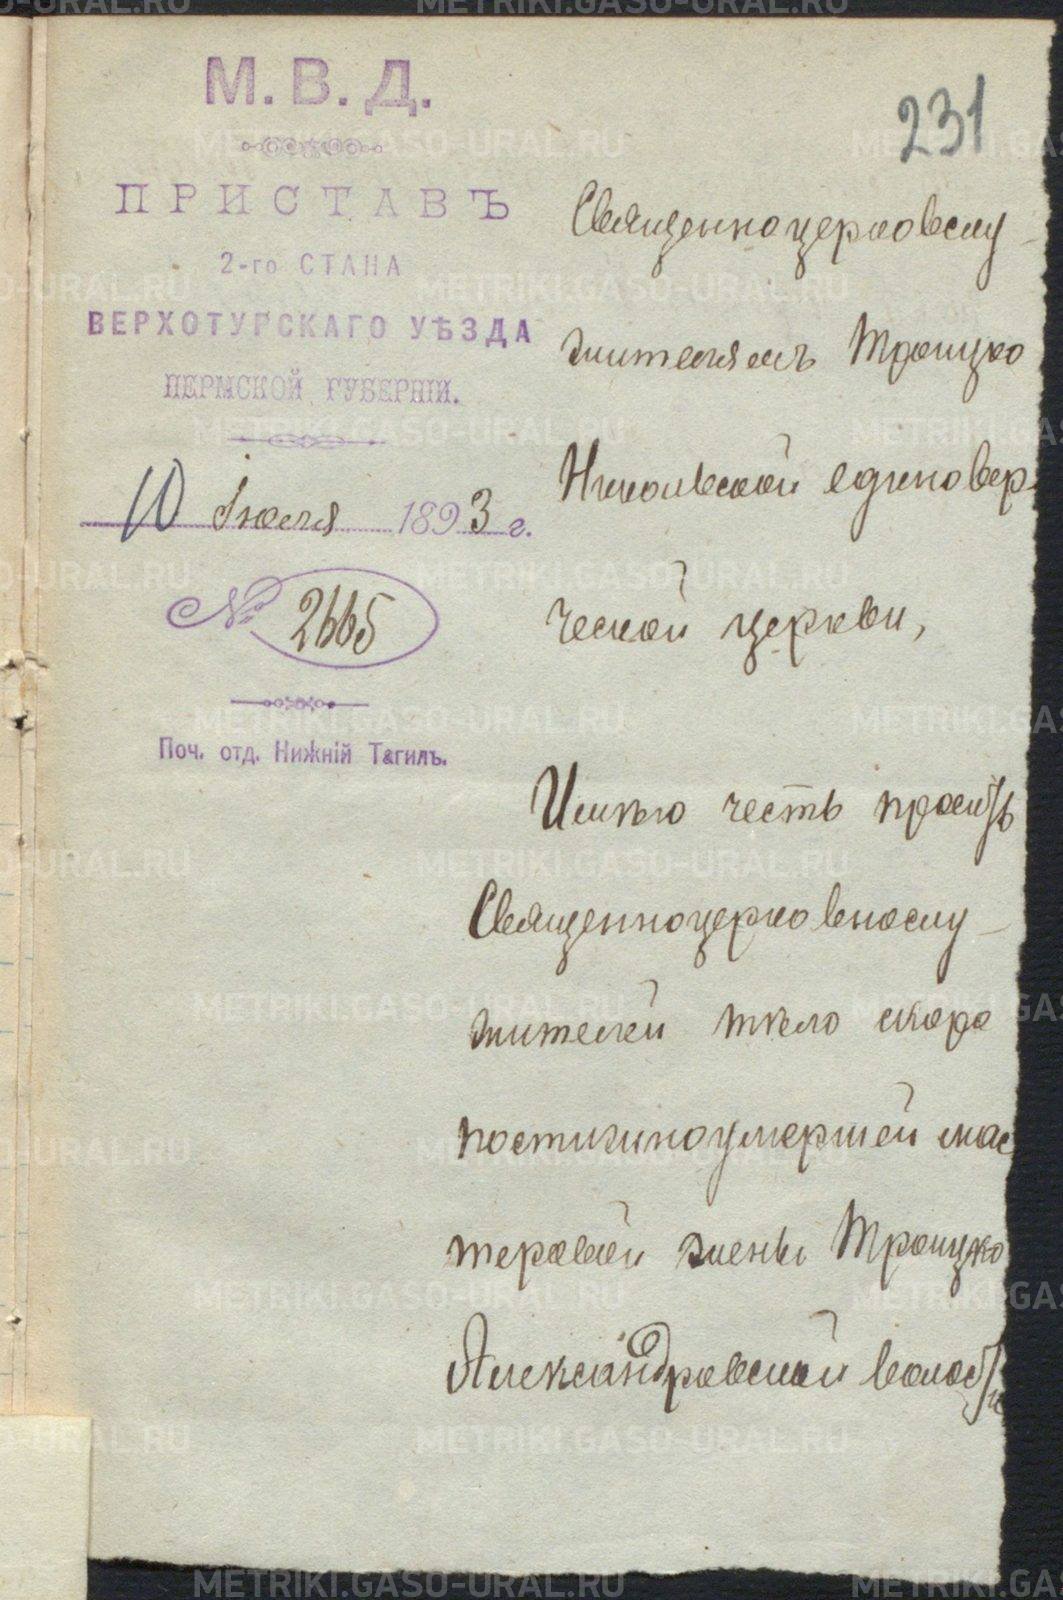 М.В.Д.
ПРИСТАВЪ
2-го СТАНА
ВЕРХОТУРСКАГО УѢЗДА
ПЕРМСКОЙ ГУБЕРНІИ.
10 Іюля 1893 г.
№ 2665
Поч. отд. Нижній Тагилъ.
231
Священноцерковслу-
жителямъ Троицко
Никольской единовер-
ческой церкви,
Имѣю честь просить
Священноцерковнослу-
жителей тѣло скоро
постижноумершей мас
теровой жены Троицко
Александровской волости
METRIKI.GASO-URAL.RU